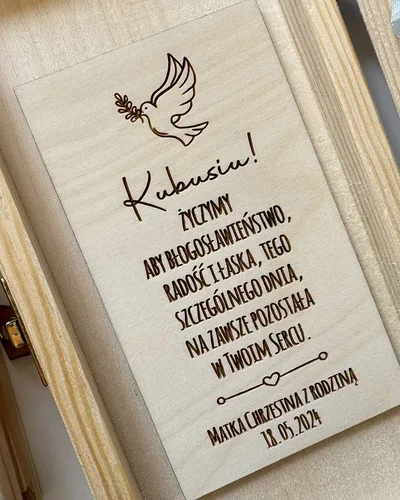 Kubusiu!
ŻYCZYMY
ABY BŁOGOSŁAWIEŃSTWO,
RADOŚĆ I ŁASKA, TEGO
SZCZEGÓLNEGO DNIA,
NA ZAWSZE POZOSTAŁA
W TWOIM SERCU.
MATKA CHRZESTNA Z RODZINĄ
18.05.2024